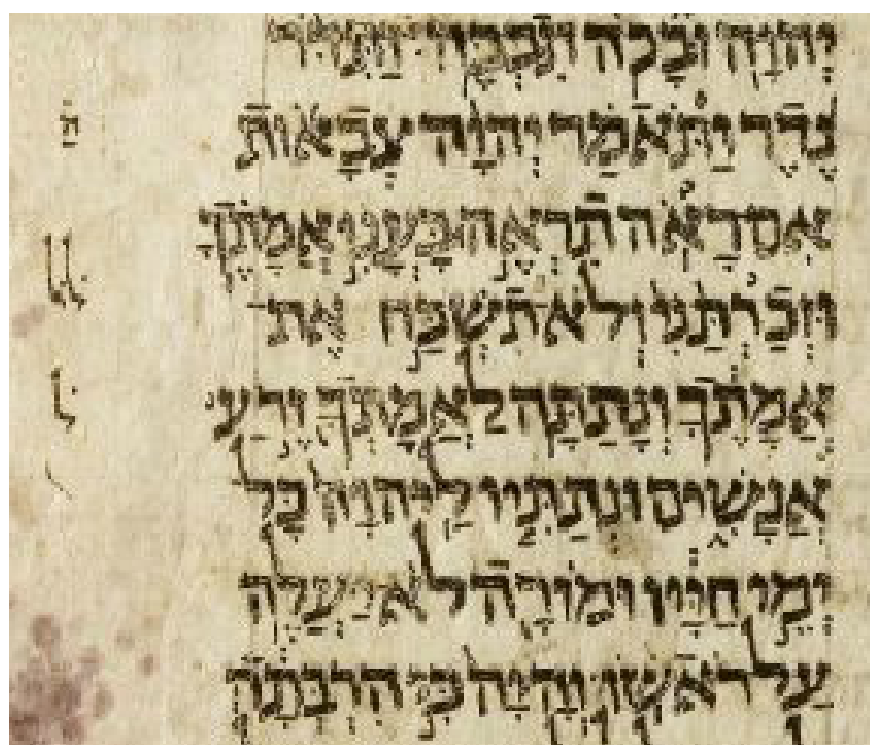 יְהוָה וּבָכֹה תִבְכֶּה׃ וַתִּדֹּר
נֶדֶר וַתֹּאמַר יְהוָה צְבָאוֹת
אִם רָאֹה תִרְאֶה בָּעֳנִי אֲמָתֶךָ
וּזְכַרְתַּנִי וְלֹא תִשְׁכַּח אֶת
אֲמָתֶךָ וְנָתַתָּה לַאֲמָתְךָ זֶרַע
אֲנָשִׁים וּנְתַתִּיו לַיהוָה כָּל
יְמֵי חַיָּיו וּמוֹרָה לֹא יַעֲלֶה
עַל רֹאשׁוֹ׃ וְהָיָה כִּי הִרְבְּתָה